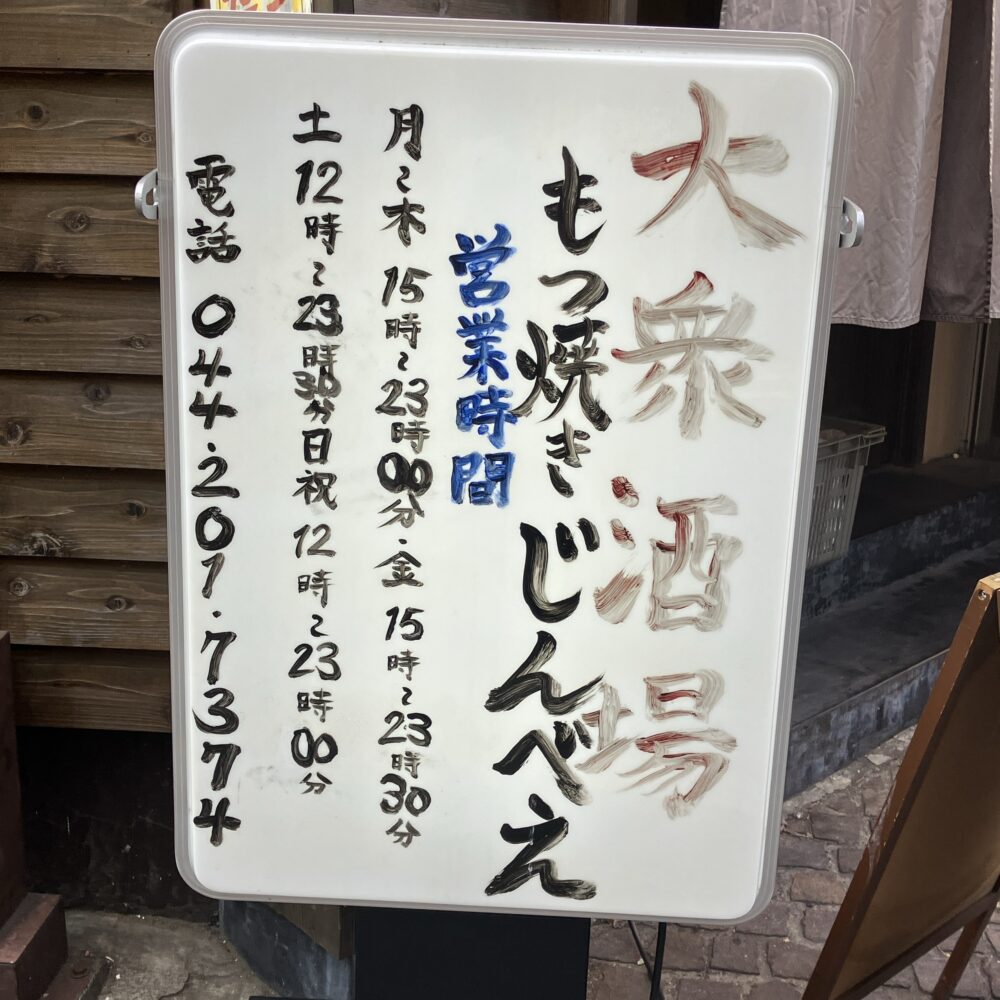 大衆酒場
もつ焼きじんべえ
営業時間
月〜木 15時〜23時00分・金 15時〜23時30分
土 12時〜23時30分 日祝 12時〜23時00分
電話 044・201・7374